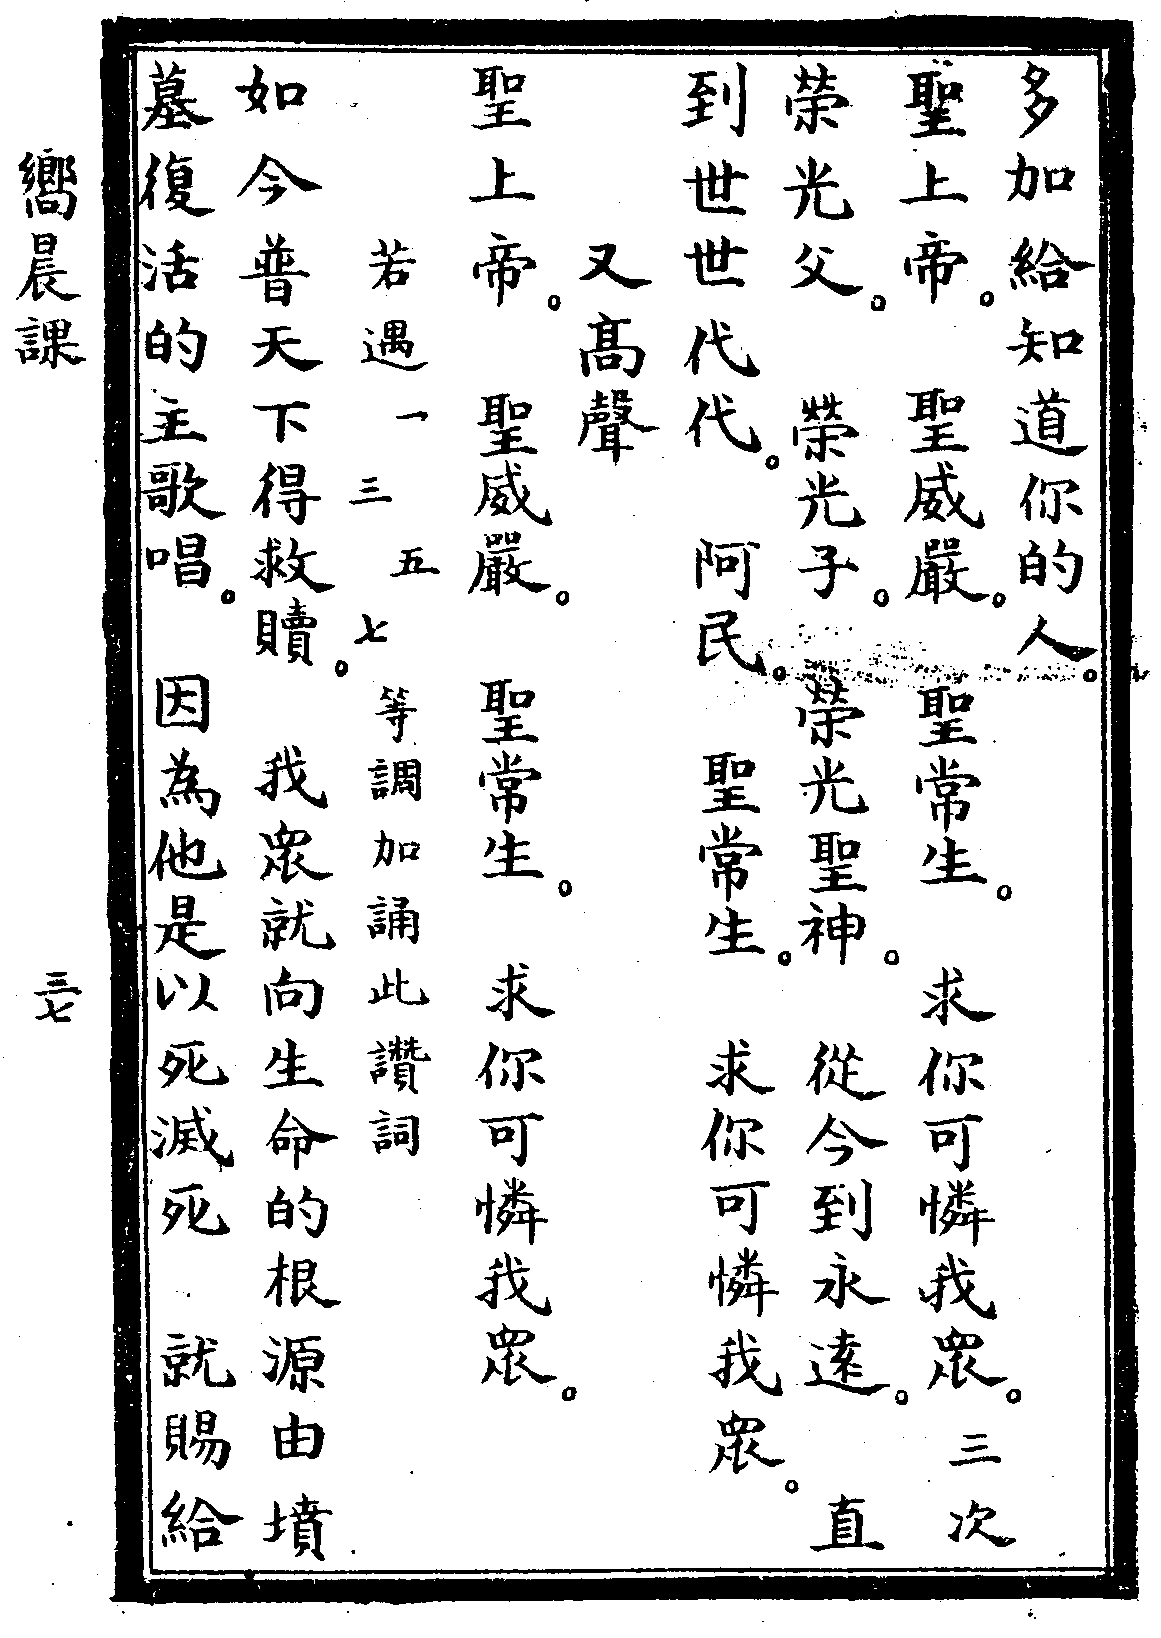 多加給知道你的人。
聖上帝。 聖威嚴。 聖常生。 求你可憐我眾。 三次
榮光父。 榮光子。 榮光聖神。 從今到永遠。 直
到世世代代。 阿民。 聖常生。 求你可憐我眾。
又高聲
聖上帝。 聖威嚴。 聖常生。 求你可憐我眾。
若遇一三五七等調加誦此讚詞
如今普天下得救贖。 我眾就向生命的根源由墳
墓復活的主歌唱。 因為他是以死滅死 就賜給
嚮晨課
三七